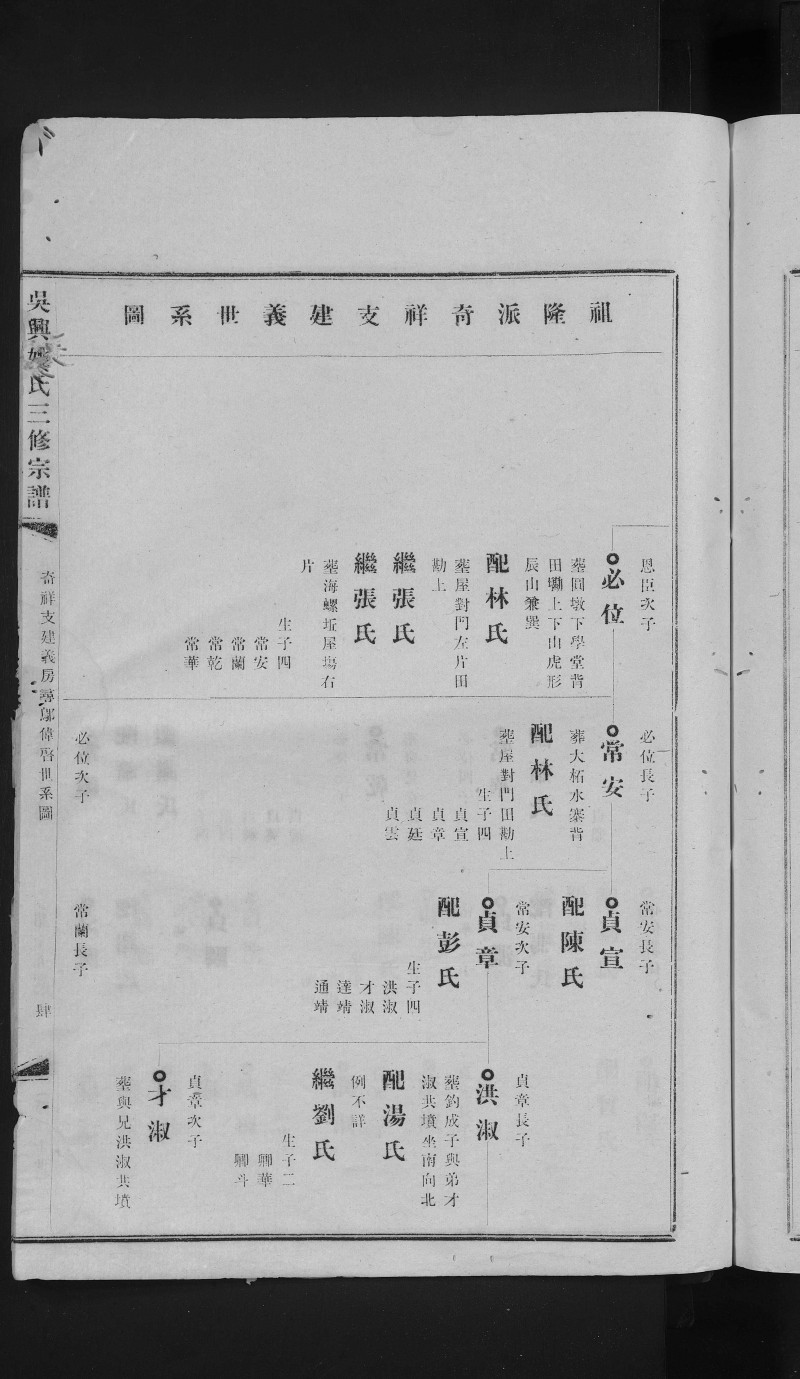 祖隆派奇祥支建義世系圖
恩臣次子
必位
葬圓墩下學堂背
田墈上下山虎形
辰山兼巽
配林氏
葬屋對門左片田
勘上
繼張氏
繼張氏
葬海螺坵屋塲右
片
生子四
常安
常蘭
常乾
常華
必位長子
常安
葬大柘水寨背
配林氏
葬屋對門田勘上
生子四
貞宣
貞章
貞廷
貞雲
必位次子
常安長子
貞宣
配陳氏
常安次子
貞章
配彭氏
生子四
洪淑
才淑
達靖
通靖
常蘭長子
貞章長子
洪淑
葬釣成子與弟才
淑共墳坐南向北
配湯氏
例不詳
繼劉氏
生子二
卿華
卿斗
貞章次子
才淑
葬與兄洪淑共墳
吳興姚氏三修宗譜
奇祥支建義房 鄔偉啓世系圖
肆